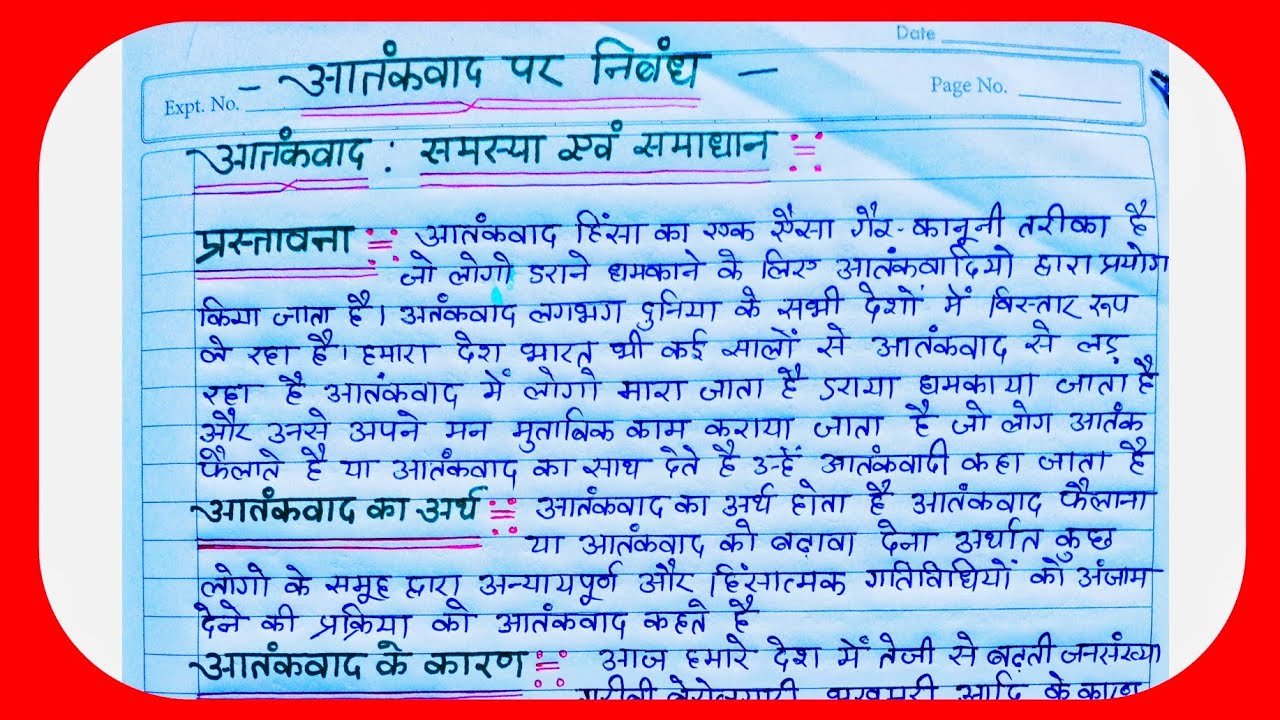 Date
- आतंकवाद पर निबंध -
Expt. No.
Page No.
आतंकवाद : समस्या एवं समाधान :=:
प्रस्तावना :=: आतंकवाद हिंसा का एक ऐसा गैर-कानूनी तरीका है
जो लोगो डराने धमकाने के लिए आतंकवादियो द्वारा प्रयोग
किया जाता है। अतंकवाद लगभग दुनिया के सभी देशों में विस्तार रूप
ले रहा है। हमारा देश भारत भी कई सालों से आतंकवाद से लड़
रहा है आतंकवाद में लोगो मारा जाता है डराया धमकाया जाता है
और उनसे अपने मन मुताबिक काम कराया जाता है जो लोग आतंक
फैलाते है या आतंकवाद का साथ देते है उन्हें आतंकवादी कहा जाता है
आतंकवाद का अर्थ :=: आतंकवाद का अर्थ होता है आतंकवाद फैलाना
या आतंकवाद को बढ़ावा देना अर्थात कुछ
लोगो के समूह द्वारा अन्यायपूर्ण और हिंसात्मक गतिविधियों को अंजाम
देने की प्रक्रिया को आतंकवाद कहते है
आतंकवाद के कारण :=: आज हमारे देश में तेजी से बढ़ती जनसंख्या
गरीबी बेरोजगारी भुखमरी आदि के कारण